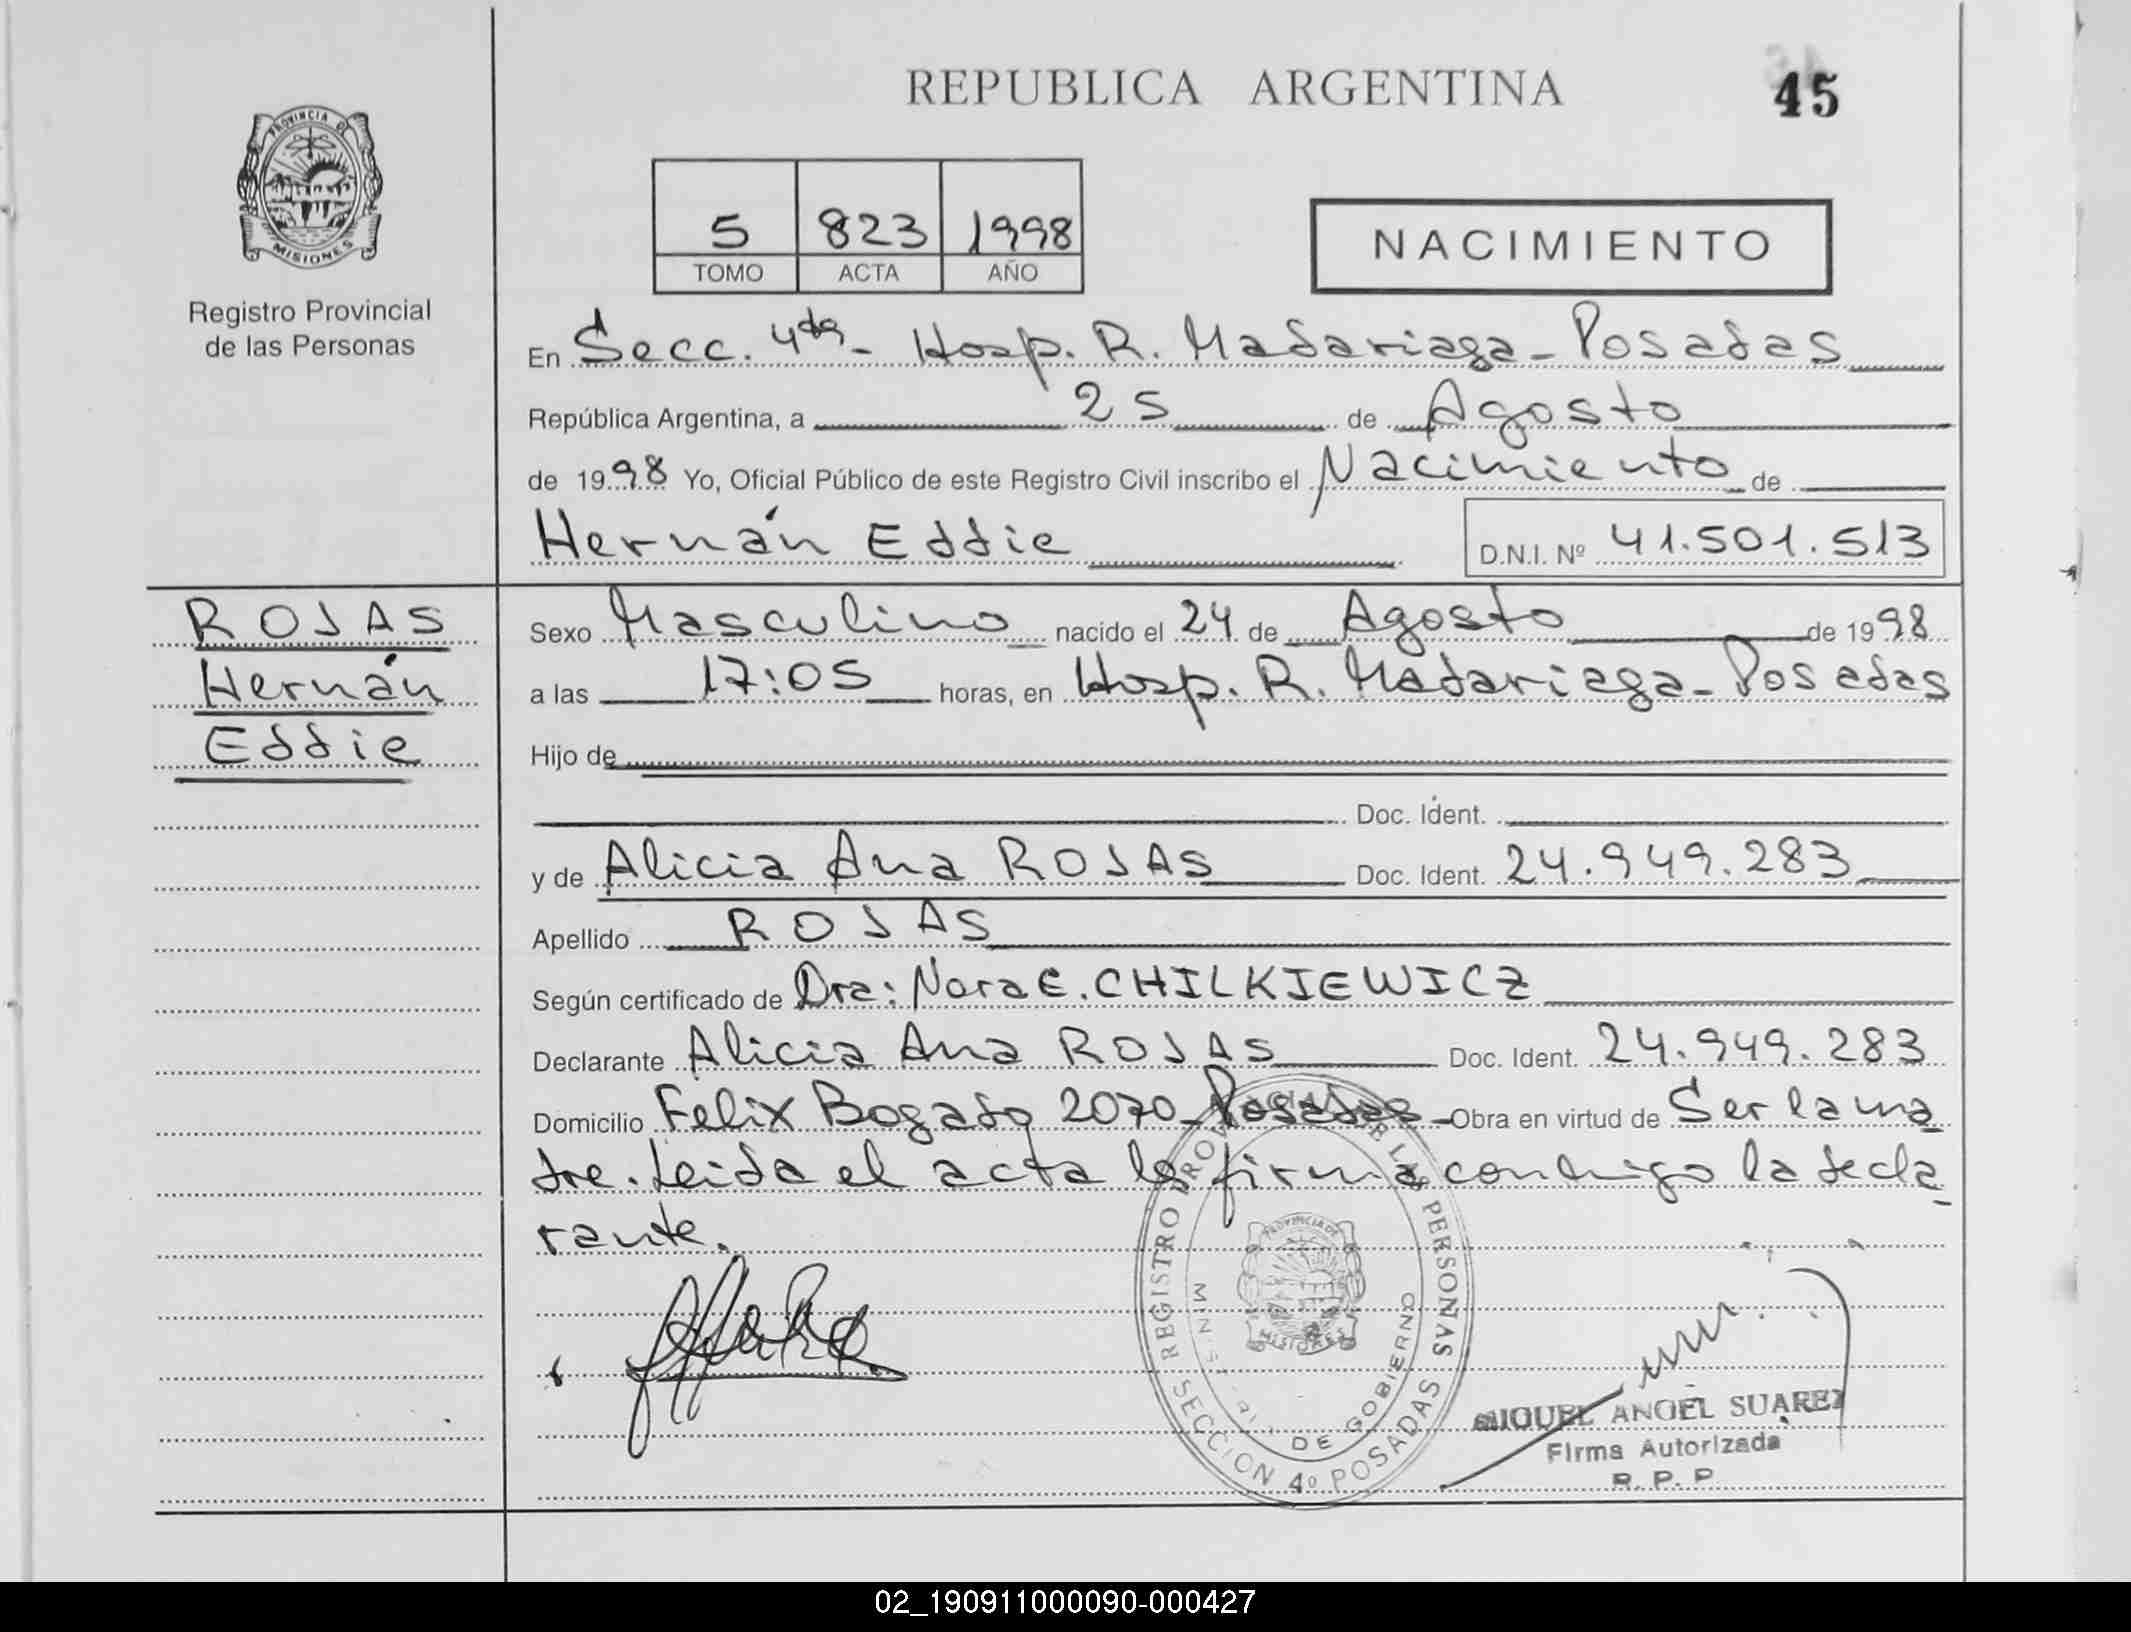 REPUBLICA ARGENTINA
45
PROVINCIA DE
MISIONES
Registro Provincial
de las Personas
5 823 1998
TOMO ACTA AÑO
NACIMIENTO
En Secc. 4ta - Hosp. R. Madariaga - Posadas
República Argentina, a 25 de Agosto
de 1998 Yo, Oficial Público de este Registro Civil inscribo el Nacimiento de
Hernán Eddie D.N.I. Nº 41.501.513
ROJAS
Hernán
Eddie
Sexo Masculino nacido el 24 de Agosto de 1998
a las 17:05 horas, en Hosp. R. Madariaga - Posadas
Hijo de
Doc. Ident.
y de Alicia Ana ROJAS Doc. Ident. 24.949.283
Apellido ROJAS
Según certificado de Dra: Nora E. CHILKIEWICZ
Declarante Alicia Ana ROJAS Doc. Ident. 24.949.283
Domicilio Felix Bogado 2070 - Posadas - Obra en virtud de Ser la ma
dre. Leida el acta la firma conmigo la decla
rante.
REGISTRO PROVINCIAL DE LAS PERSONAS
PROVINCIA DE
MISIONES
DE GOBIERNO
SECCION 4º POSADAS
MIGUEL ANGEL SUAREZ
Firma Autorizada
R. P. P.
02_190911000090-000427